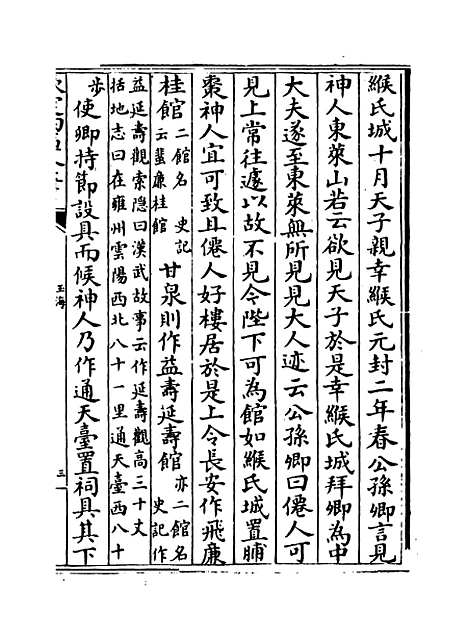 緱氏城十月天子親幸緱氏元封二年春公孫卿言見
神人東萊山若云欲見天子於是幸緱氏城拜卿為中
大夫遂至東萊無所見見大人迹云公孫卿曰僊人可
見上常往遽以故不見今陛下可為館如緱氏城置脯
棗神人宜可致且僊人好樓居於是上令長安作飛廉
桂館二館名史記云蜚廉桂館甘泉則作益壽延壽館亦二館名史記作
益延壽觀索隐曰漢武故事云作延壽觀高三十丈
括地志曰在雍州雲陽西北八十一里通天臺西八十
步使卿持節設具而候神人乃作通天臺置祠具其下
玉海
三